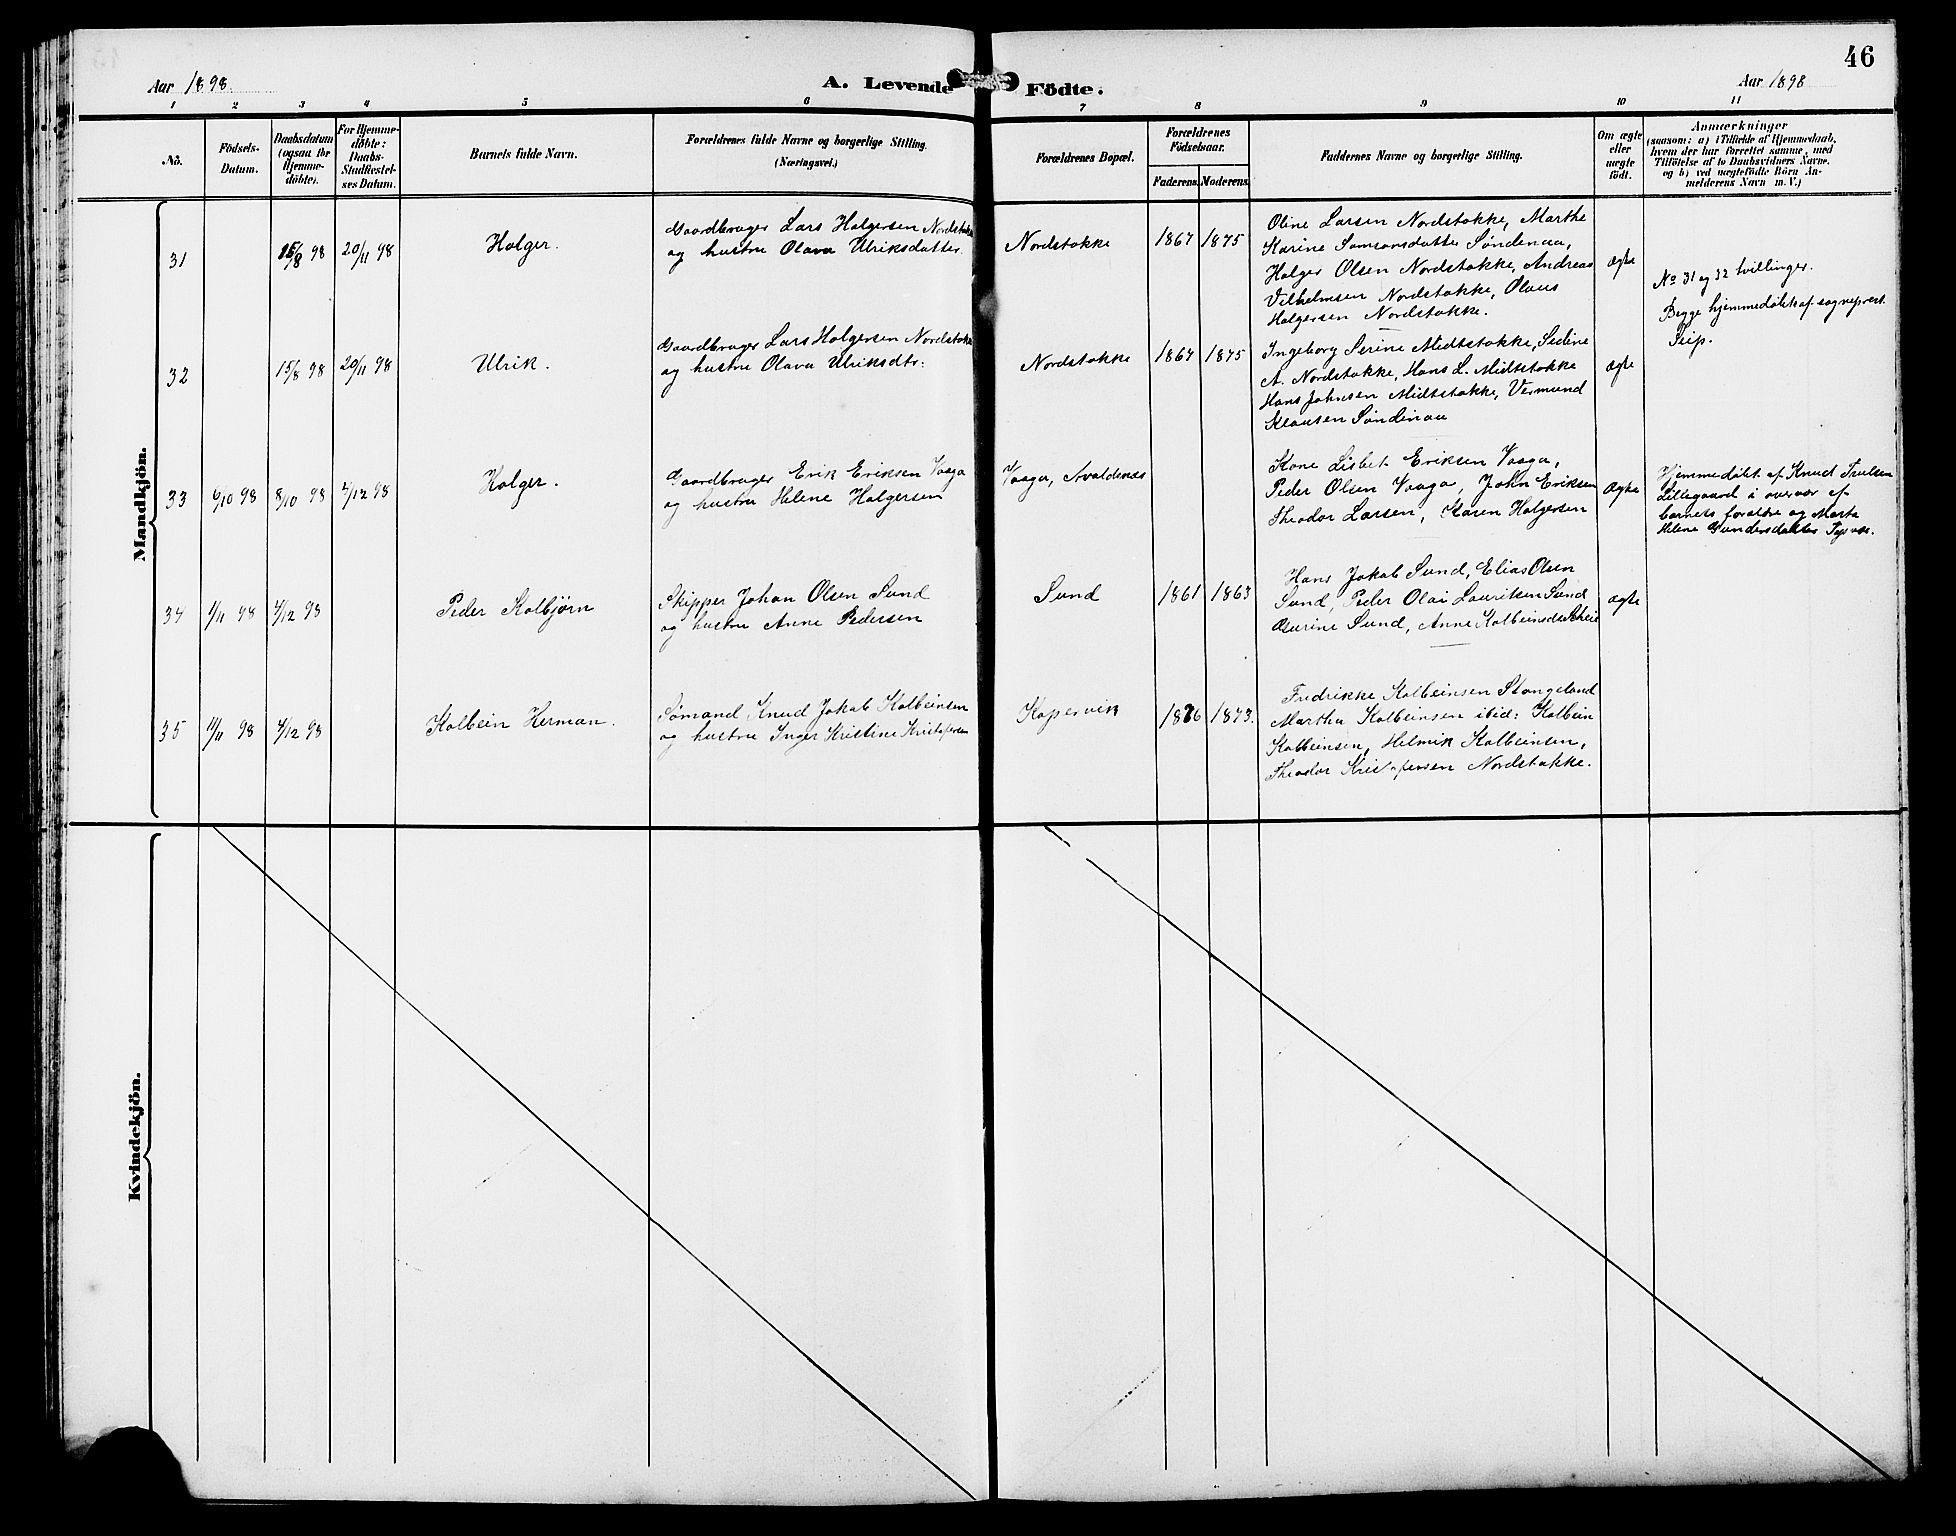 46
Aar 1898.
A. Levende Födte.
Aar 1898
1 2 3 4 5 6 7 8 9 10 11
No.
Födsels-
Datum.
Daabsdatum
(ogsaa for
Hjemme-
döbte).
For Hjemme-
döbte:
Daabs-
Stadfæstel-
ses Datum.
Barnets fulde Navn.
Forældrenes fulde Navne og borgerlige Stilling.
(Næringsvei.)
Forældrenes Bopæl.
Forældrenes
Födselsaar.
Faderens. Moderens.
Faddernes Navne og borgerlige Stilling.
Om ægte
eller
uægte
födt.
Anmærkninger
(saasom: a) i Tilfælde af Hjemmedaab,
hvem der har forrettet samme, med
Tilföielse af to Daabsvidners Navne,
og b) ved uægtefödte Börn An-
melderens Navn m. V.)
Mandkjön.
31
15/8 98
20/11 98
Holger.
Gaardbruger Lars Holgersen Nordstokke
og hustru Olava Ulriksdatter.
Nordstokke
1867 1875
Oline Larsen Nordstokke, Marthe
Karine Samsonsdatter Søndenaa,
Holger Olsen Nordstokke, Andreas
Vilhelmsen Nordstokke, Olaus
Holgersen Nordstokke.
ægte
No 31 og 32 tvillinger.
Begge hjemmedøbt af sogneprest
Seip.
32
15/8 98
20/11 98
Ulrik.
Gaardbruger Lars Holgersen Nordstokke
og hustru Olava Ulriksdtr.
Nordstokke
1867 1875
Ingeborg Serine Midtstokke, Sedine
A. Nordstokke, Hans L. Midtstokke
Hans Johnsen Midtstokke, Vermund
Klausen Søndenaa
ægte
33
6/10 98
8/10 98
4/12 98
Holger.
Gaardbruger Erik Eriksen Vaaga
og hustru Helene Holgersen
Vaaga, Avaldsnes
Kone Lisbet Eriksen Vaaga,
Peder Olsen Vaaga, John Eriksen
Theodor Larsen, Karen Holgersen
ægte
Hjemmedøbt af Knud Truelsen
Lillegaard i overvær af
barnets forældre og Marta
Helene Gundersdatter
34
1/11 98
4/12 98
Peder Kolbjørn
Skipper Johan Olsen Sund
og hustru Anne Pedersen
Sund
1861 1863
Hans Jakob Sund, Elias Olsen
Sund, Peder Olai Lauritsen Sund
Gurine Sund, Anne Kolbeinsdtr
ægte
35
11/11 98
4/12 98
Kolbein Herman.
Sømand Knud Jakob Kolbeinsen
og hustru Inger Kristine Kristofersen
Kopervik
1876 1873.
Fredrikke Kolbeinsen Stangeland
Martha Kolbeinsen ibid: Kolbein
Kolbeinsen, Helmik Kolbeinsen,
Theodor Kristofersen Nordstokke.
Kvindekjön.